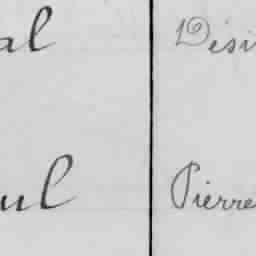 al Dési
ul Pierre